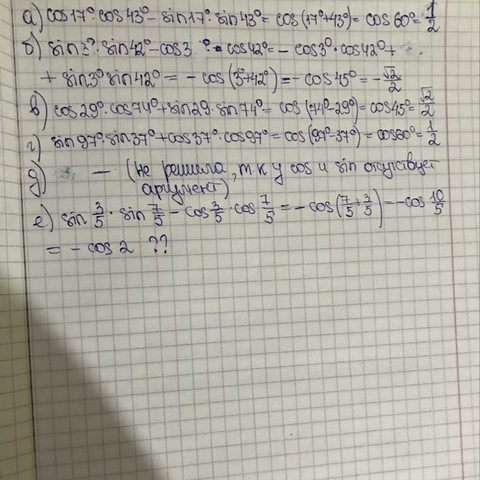 а) cos17°·cos43°-sin17°·sin43°=cos(17°+43°)=cos60°=1/2
б) sin3°·sin42°-cos3°·cos42°=-cos3°·cos42°+
+sin3°sin42°=-cos(3°+42°)=-cos45°=-√2/2
в) cos29°·cos74°+sin29·sin74°=cos(74°-29°)=cos45°=√2/2
г) sin97°·sin37°+cos37°·cos97°=cos(97°-37°)=cos60°=1/2
д) — (не решила, т.к у cos и sin отсутствует
аргумент)
е) sin 3/5·sin 7/5-cos 3/5·cos 7/5=-cos(7/5+3/5)=-cos 10/5
=-cos 2 ??